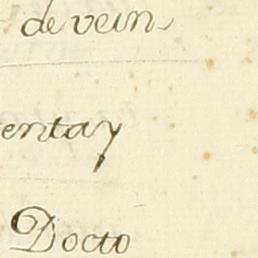 de vein
entay
Docto